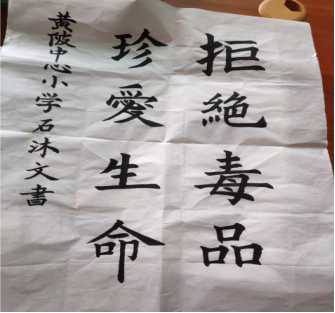 拒絕毒品
珍愛生命
黃陂中心小学石沐文書